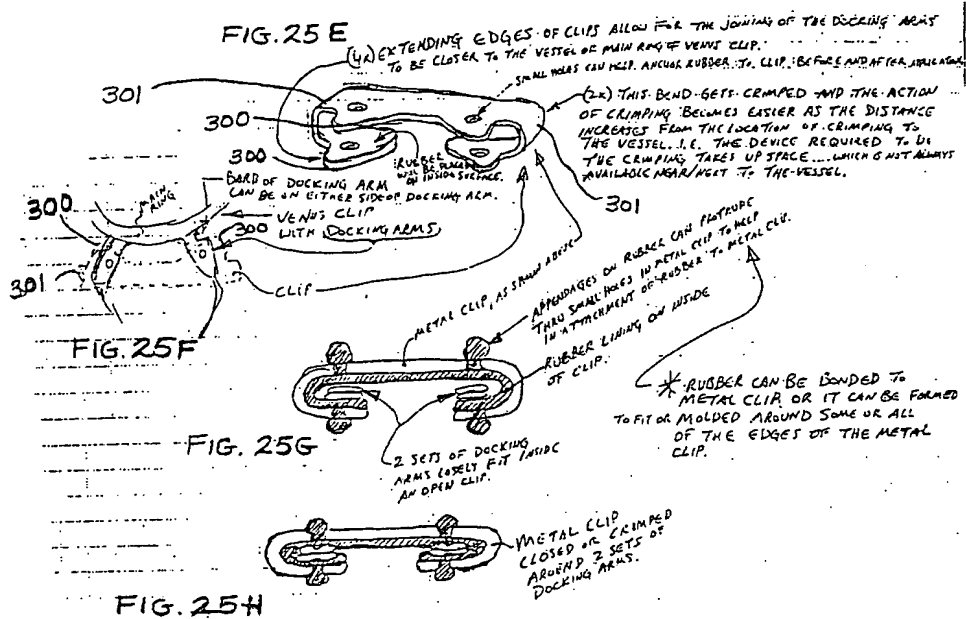 FIG. 25 E
(4X) EXTENDING EDGES OF CLIPS ALLOW FOR THE JOINING OF THE DOCKING ARMS
TO BE CLOSER TO THE VESSEL OF MAIN RING OF VENUS CLIP.
SMALL HOLES CAN HELP ANCHOR RUBBER TO CLIP BEFORE AND AFTER
301
300
300
RUBBER
WILL BE PLACED
ON INSIDE SURFACE.
(2X) THIS BEND GETS CRIMPED AND THE ACTION
OF CRIMPING BECOMES EASIER AS THE DISTANCE
INCREASES FROM THE LOCATION OF CRIMPING TO
THE VESSEL. I.E. THE DEVICE REQUIRED TO DO
THE CRIMPING TAKES UP SPACE .... WHICH IS NOT ALWAYS
AVAILABLE NEAR/NEXT TO THE VESSEL.
301
BARB OF DOCKING ARM
CAN BE ON EITHER SIDE OF DOCKING ARM.
MAIN
RING
VENUS CLIP
WITH DOCKING ARMS
300
300
301
CLIP
FIG. 25F
METAL CLIP, AS SHOWN ABOVE
APPENDAGES ON RUBBER CAN PROTRUDE
THRU SMALL HOLES IN METAL CLIP TO HELP
IN ATTACHMENT OF RUBBER TO METAL CLIP.
RUBBER LINING ON INSIDE
OF CLIP.
FIG. 25G
2 SETS OF DOCKING
ARMS LOSELY FIT INSIDE
AN OPEN CLIP.
* RUBBER CAN BE BONDED TO
METAL CLIP OR IT CAN BE FORMED
TO FIT OR MOLDED AROUND SOME OR ALL
OF THE EDGES OF THE METAL
CLIP.
METAL CLIP
CLOSED OR CRIMPED
AROUND 2 SETS OF
DOCKING ARMS.
FIG. 25H